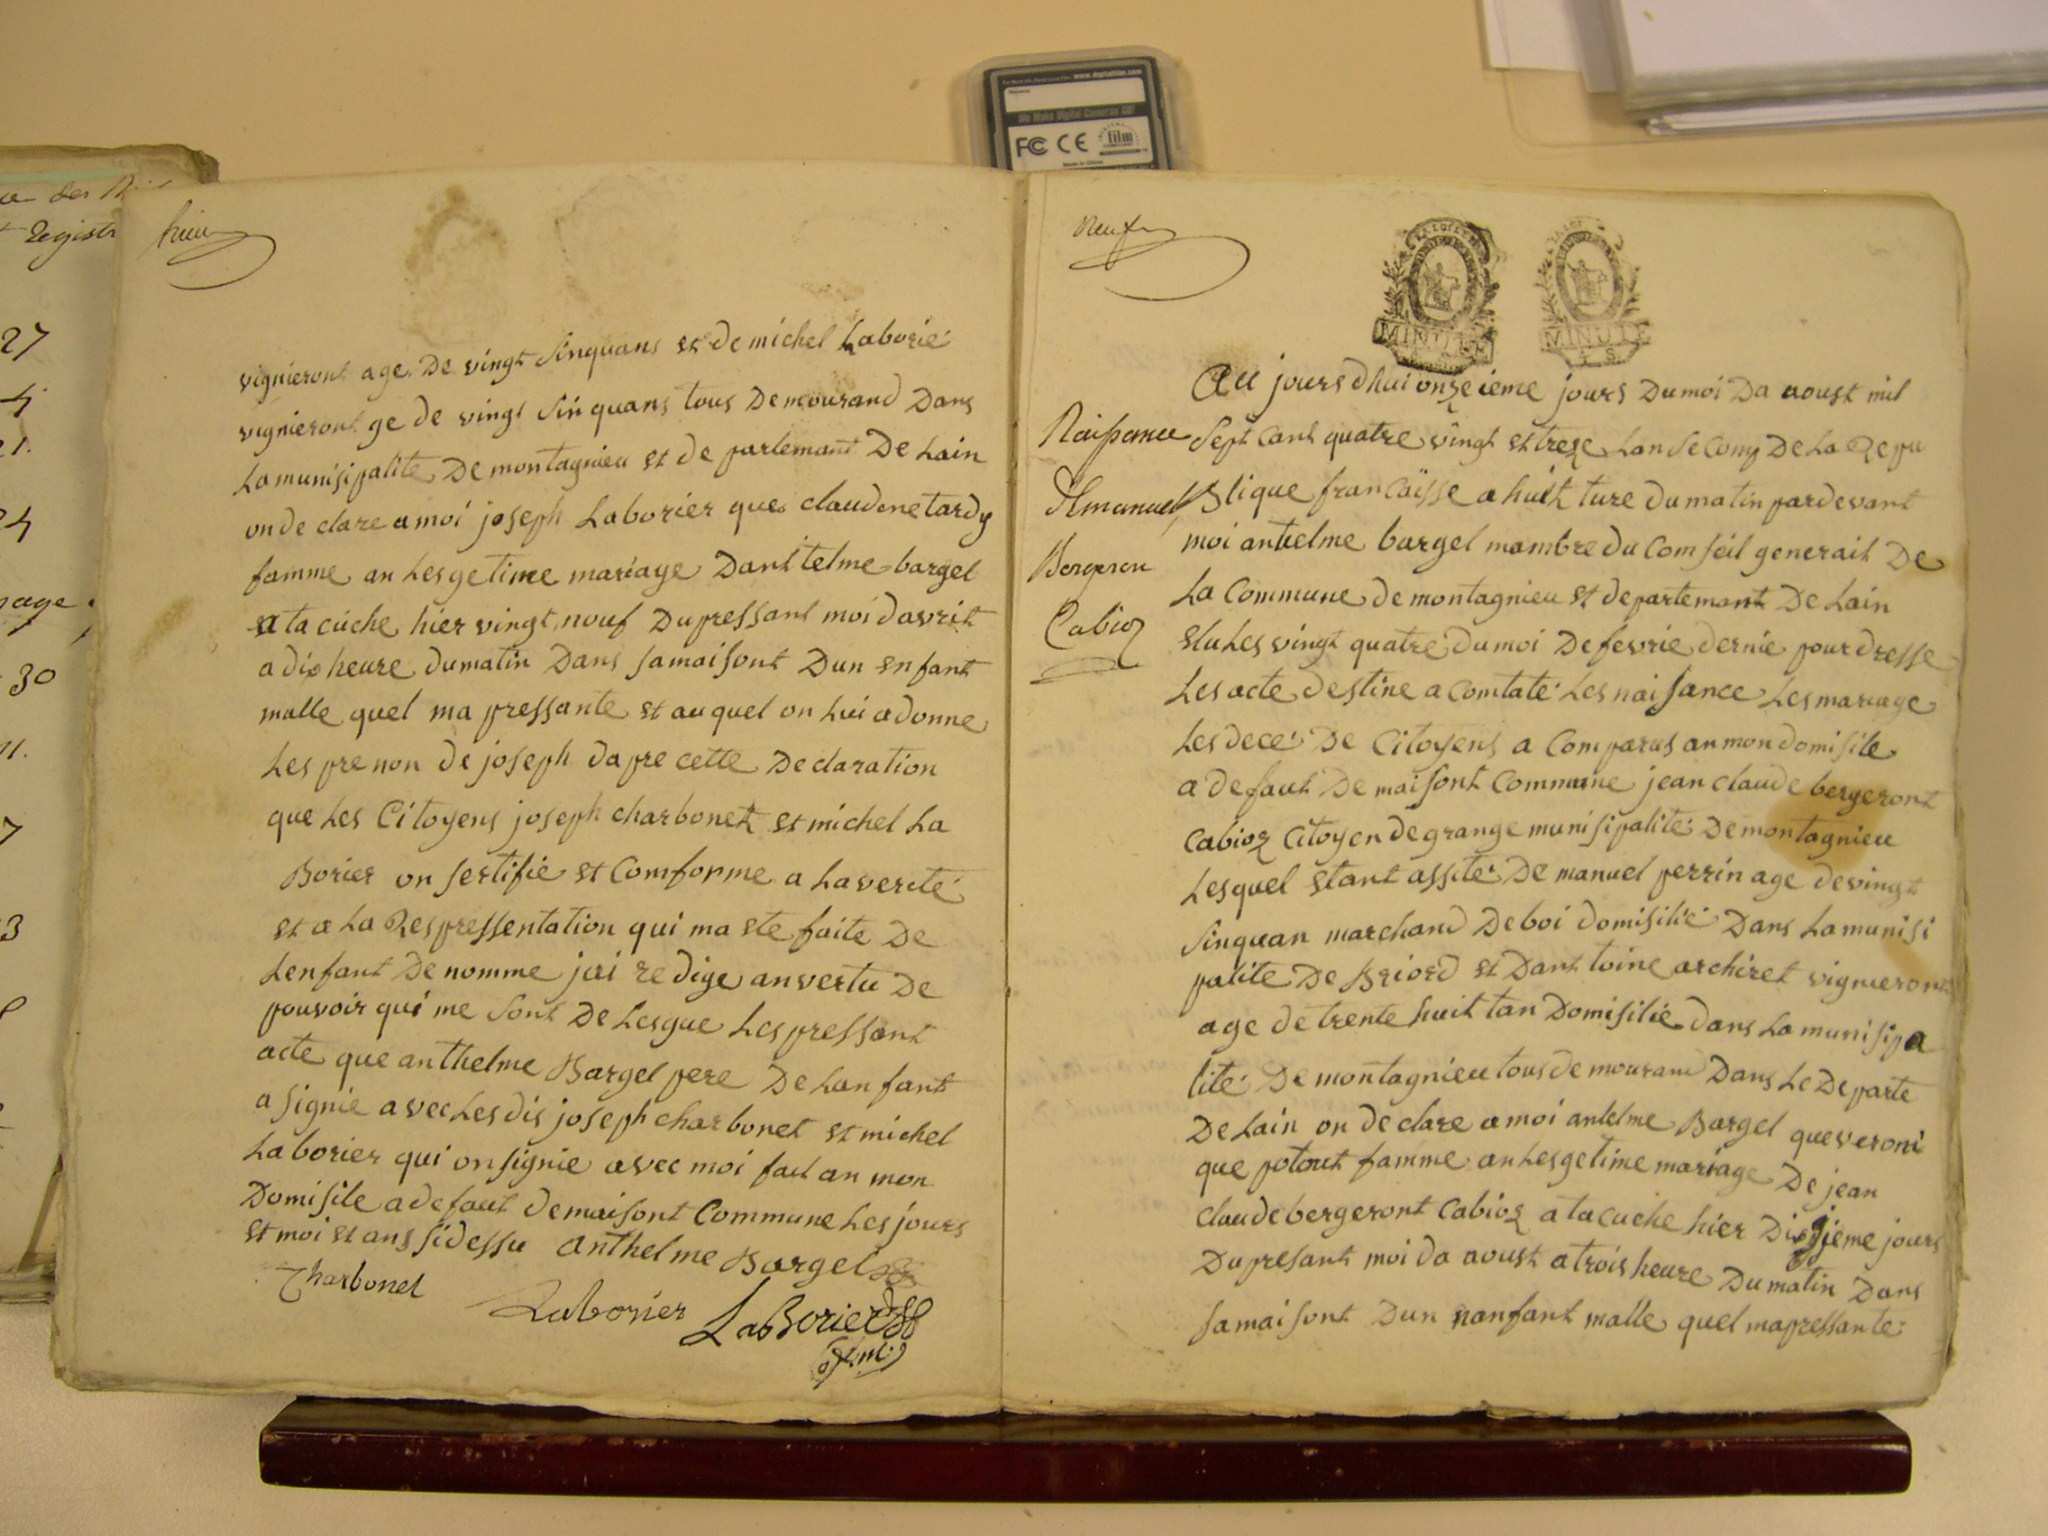 27
4
21.
24
30
huit
vignieront age De vingt sinquans et de michel Laborie
vignieront ge de vingt sinquans tous Demourand Dans
La munisipalite De montagnieu et de partemant De Lain
on de clare a moi joseph Laborier que claudine tardy
famme an Lesgetime mariage Dant telme bargel
a ta cuche hier vingt nouf Du pressant moi davrit
a dix heure du matin Dans samaisont Dun enfant
malle quel ma pressante et au quel on Lui a donne
Les prenon de joseph dapre cette Declaration
que Les Citoyens joseph charbonet et michel La
Borier on sertifie et Comforme a La verite
et a La Respressentation qui ma ete faite De
Lenfant De nomme jai re dige an vertu De
pouvoir qui me sont De Lesgue Les pressant
acte que anthelme Bargel pere De Lan fant
a signie avec Les dis joseph charbonet et michel
Laborier qui on signie avec moi fait an mon
Domisile a de faut de maisont Commune Les jours
et moi et ans sidessu anthelme Bargel
Charbonet
Laborier LaBorier
Neuf
MINUTE
MINUTE
Naissance
d'Emanuel
Bergeron
Cabioz
Au jours dhui onze ieme jours Du moi Da aoust mil
sept cant quatre vingt et treze Lan secomp De La Repu
Blique francaisse a huit ture du matin pardevant
moi antelme bargel mambre du Comseil generait De
La Commune de montagnieu et departemant De Lain
elu Les vingt quatre du moi De fevrie dernie pour dresse
Les acte destine a Comtate Les naisance Les mariage
Les dece De Citoyens a Comparus an mon domisile
a defaut De maisont Commune jean claude bergeront
Cabioz Citoyen de grange munisipalite De montagnieu
Lesquel etant assite De manuel perrin age de vingt
sinquan marchand De boi domisilie Dans La munisi
palite De Briord et Dant toine archiret vignieront
age de trente huit tan Domisilie dans La munisipa
lite De montagnieu tous de mourand Dans Le De parte
De Lain on de clare a moi antelme Bargel que veroni
que potout famme an Lesgetime mariage De jean
claude bergeront Cabioz a ta cuche hier Dixsieme jours
Du presant moi da aoust a trois heure Du matin Dans
samaisont Dun nanfant malle quel mapressante
www.digitalfilm.com
We Make Digital Cameras GO!
FC CE
film